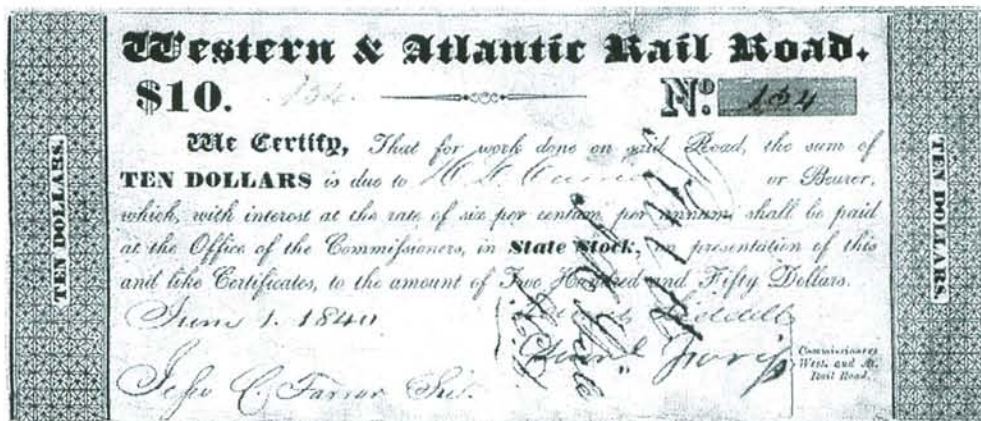 Western & Atlantic Rail Road.
$10. 134 No. 134
We Certify, That for work done on said Road, the sum of
TEN DOLLARS is due to or Bearer,
which, with interest at the rate of six per centum per annum, shall be paid
at the Office of the Commissioners, in State Stock, on presentation of this
and like Certificates, to the amount of Two Hundred and Fifty Dollars.
June 1. 1840
Commissioners
West. and At.
Rail Road.
TEN DOLLARS.
TEN DOLLARS.